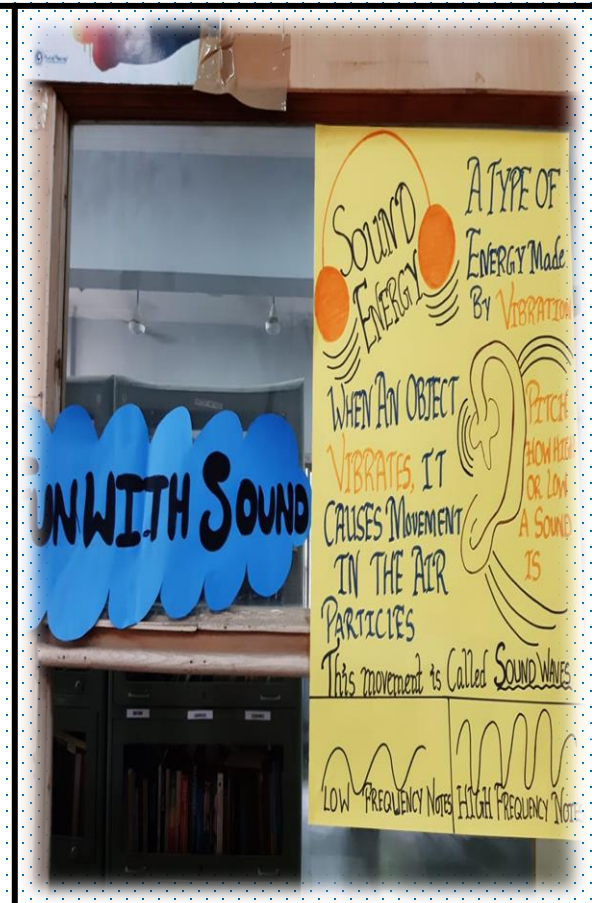 UN WITH SOUND
SOUND
ENERGY
A TYPE OF
ENERGY Made
By VIBRATION
WHEN AN OBJECT
VIBRATES, IT
CAUSES MOVEMENT
IN THE AIR
PARTICLES
PITCH
HOW HIGH
OR LOW
A SOUND
IS
This movement is Called SOUND WAVES
LOW FREQUENCY NOTES
HIGH FREQUENCY NOT